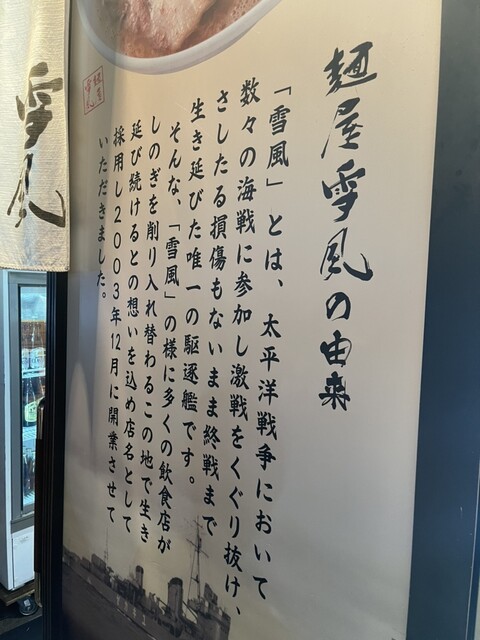 麺屋雪風の由来
「雪風」とは、太平洋戦争において
数々の海戦に参加し激戦をくぐり抜け、
さしたる損傷もないまま終戦まで
生き延びた唯一の駆逐艦です。
そんな、「雪風」の様に多くの飲食店が
しのぎを削り入れ替わるこの地で生き
延び続けるとの想いを込め店名として
採用し2003年12月に開業させて
いただきました。
麺屋雪風
雪風